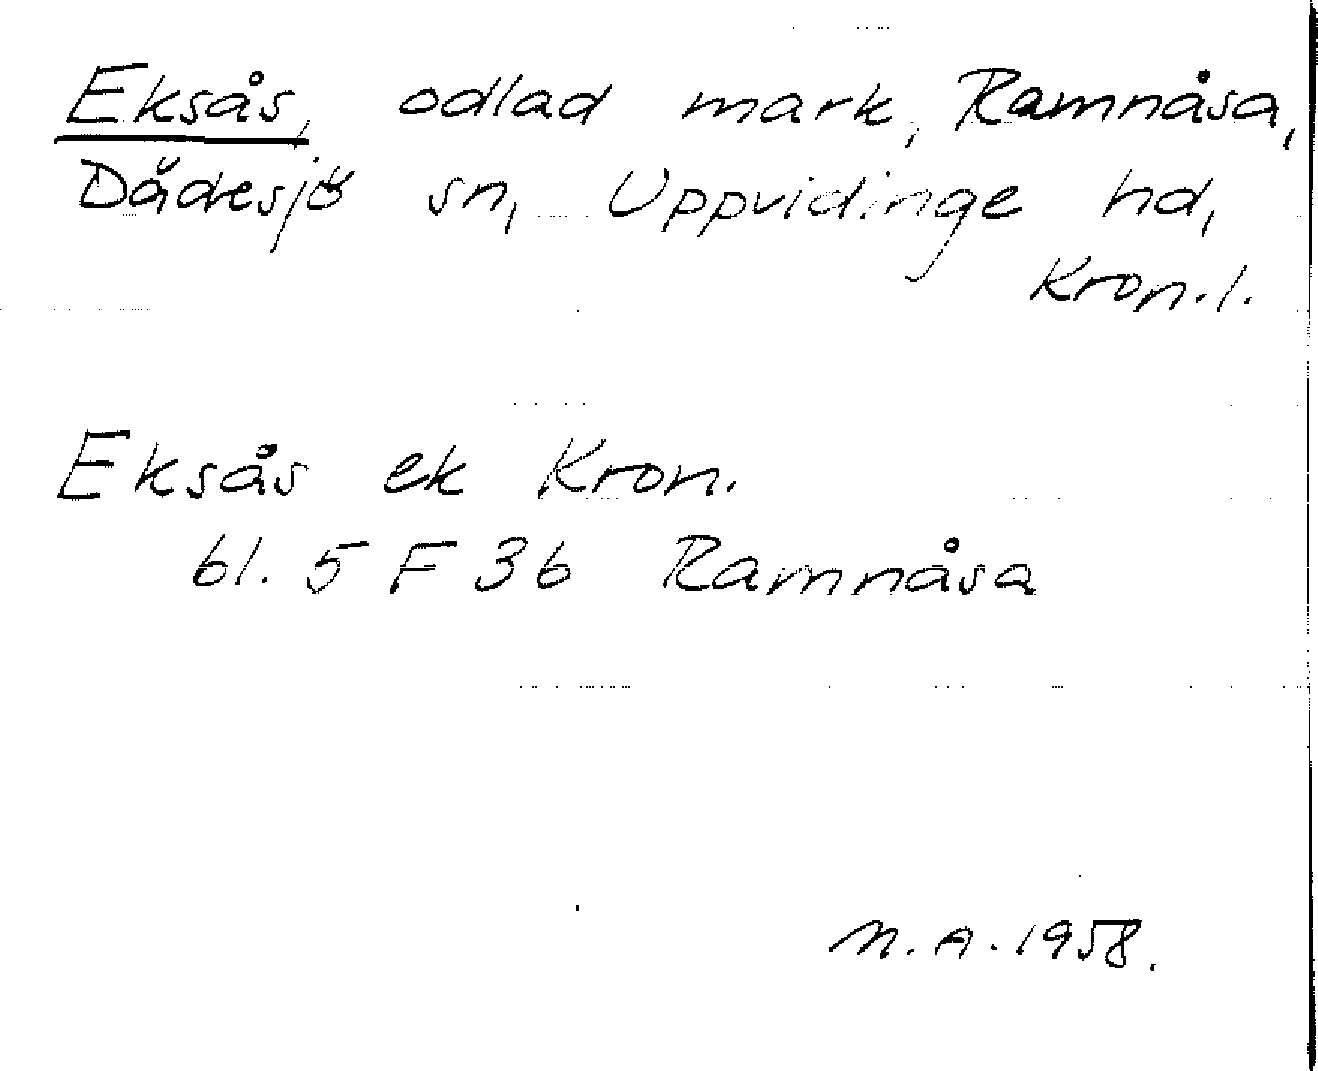 Eksås, odlad mark, Ramnåsa,
Dädesjö sn, Uppvidinge hd,
Kron.l.
Eksås ek Kron.
bl. 5 F 3b Ramnåsa
M.A. 1958.